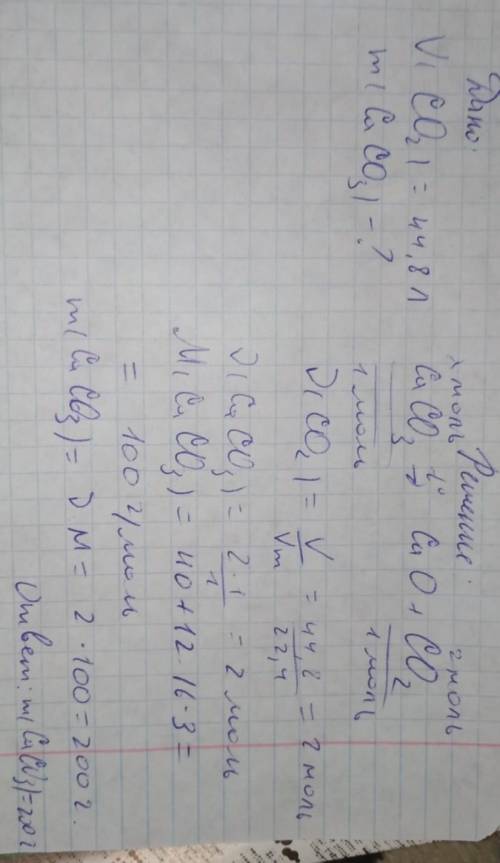 Дано:
V(CO₂) = 44,8 л
m(CaCO₃) - ?
Решение:
x моль 2 моль
CaCO₃ t°→ CaO + CO₂
1 моль 1 моль
ν(CO₂) = V/Vm = 44,8/22,4 = 2 моль
ν(CaCO₃) = 2·1/1 = 2 моль
M(CaCO₃) = 40+12·16·3=
= 100 г/моль
m(CaCO₃) = ν M = 2·100=200 г.
Ответ: m(CaCO₃)=200 г